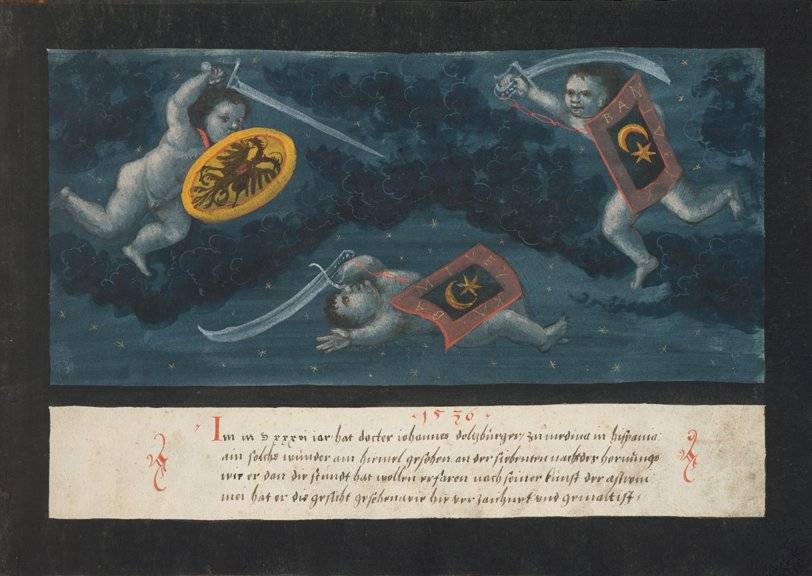 BAMLVE
BAMLVEYKA
· 1 5 36 ·
Im m d xxxvi iar hat doctor iohannes dolzburger zu medina in hispania
ain solche wunder am himel gesehen an der siebenten nacht des hornungs
wie er dan die stundt hat wollen erfaren nach seiner kunst der astrom
mei hat er die gesicht gesehen wie hie verzaichnet und gemalt ist